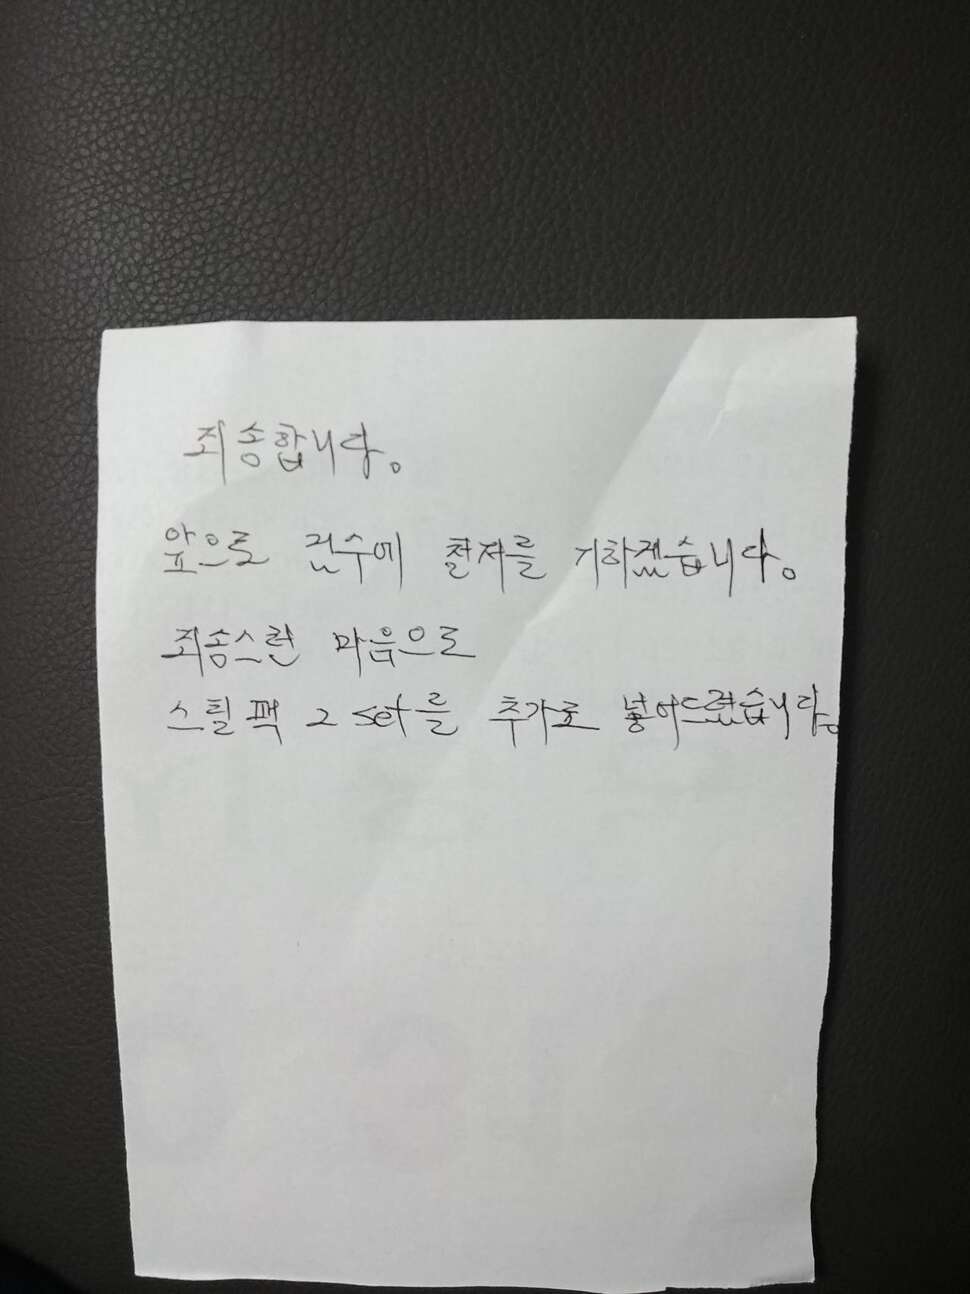 죄송합니다.
앞으로 검수에 철저를 기하겠습니다.
죄송스런 마음으로
스틸 팩 2 set를 추가로 넣어드렸습니다.